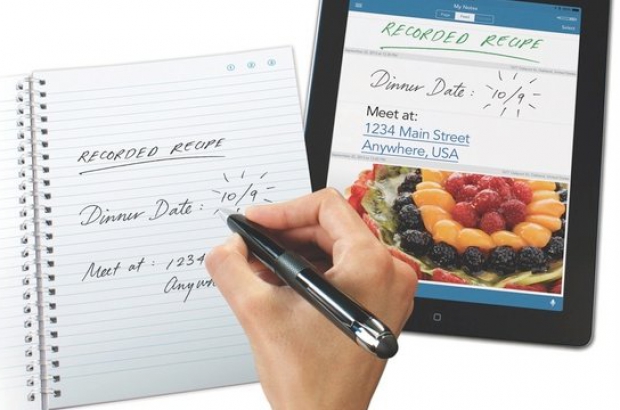 RECORDED RECIPE
Dinner Date : 10/9
Meet at : 1234
My Notes
RECORDED RECIPE
Dinner Date : 10/9
Meet at:
1234 Main Street
Anywhere, USA